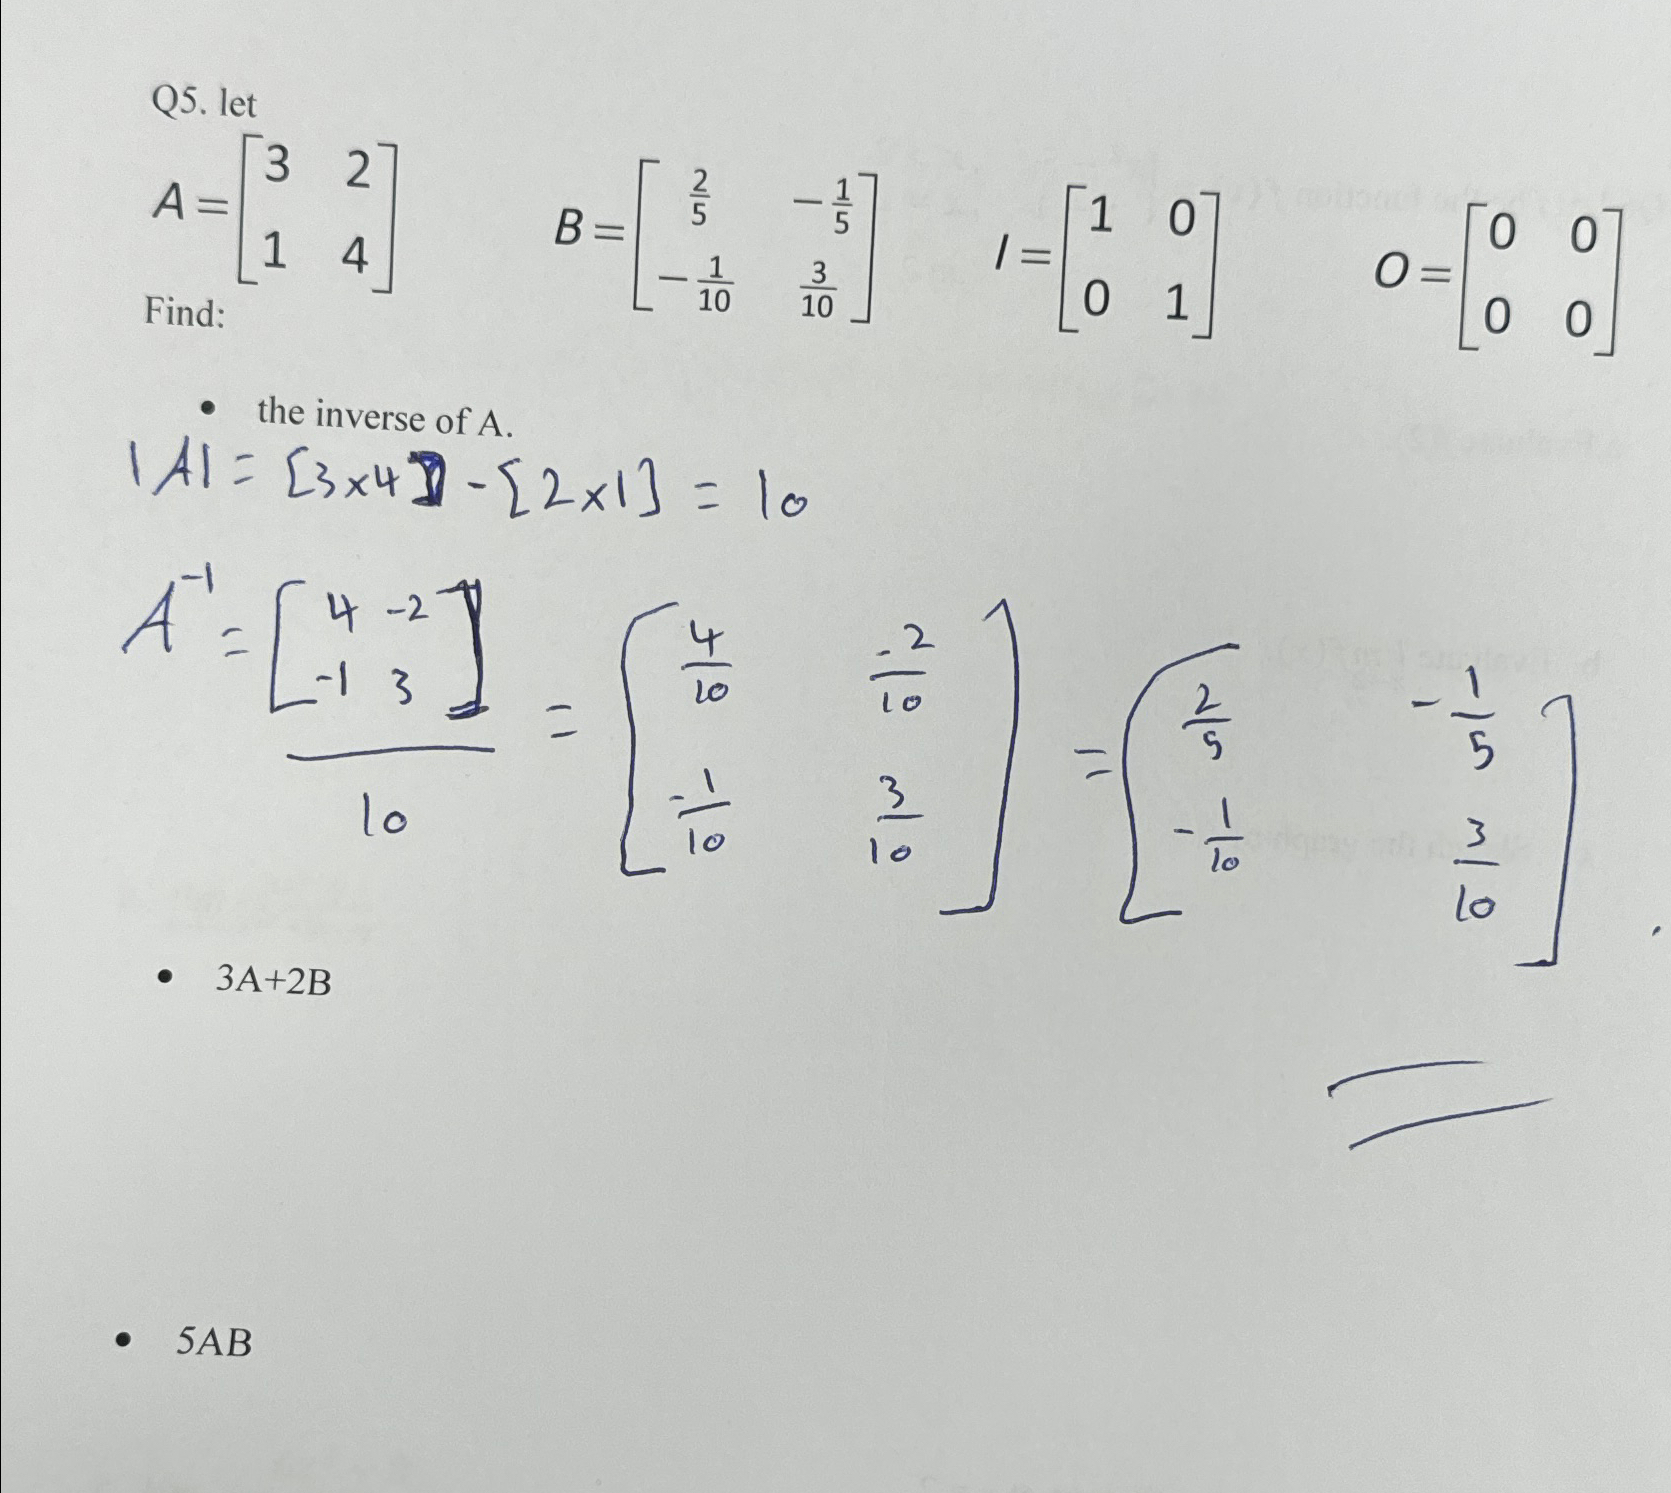 Q5. let
A = [3 2; 1 4] B = [2/5 -1/5; -1/10 3/10] I = [1 0; 0 1] O = [0 0; 0 0]
Find:
• the inverse of A.
|A| = [3×4] - [2×1] = 10
A⁻¹ = [4 -2; -1 3]/10 = [4/10 -2/10; -1/10 3/10] = [2/5 -1/5; -1/10 3/10]
• 3A+2B
• 5AB